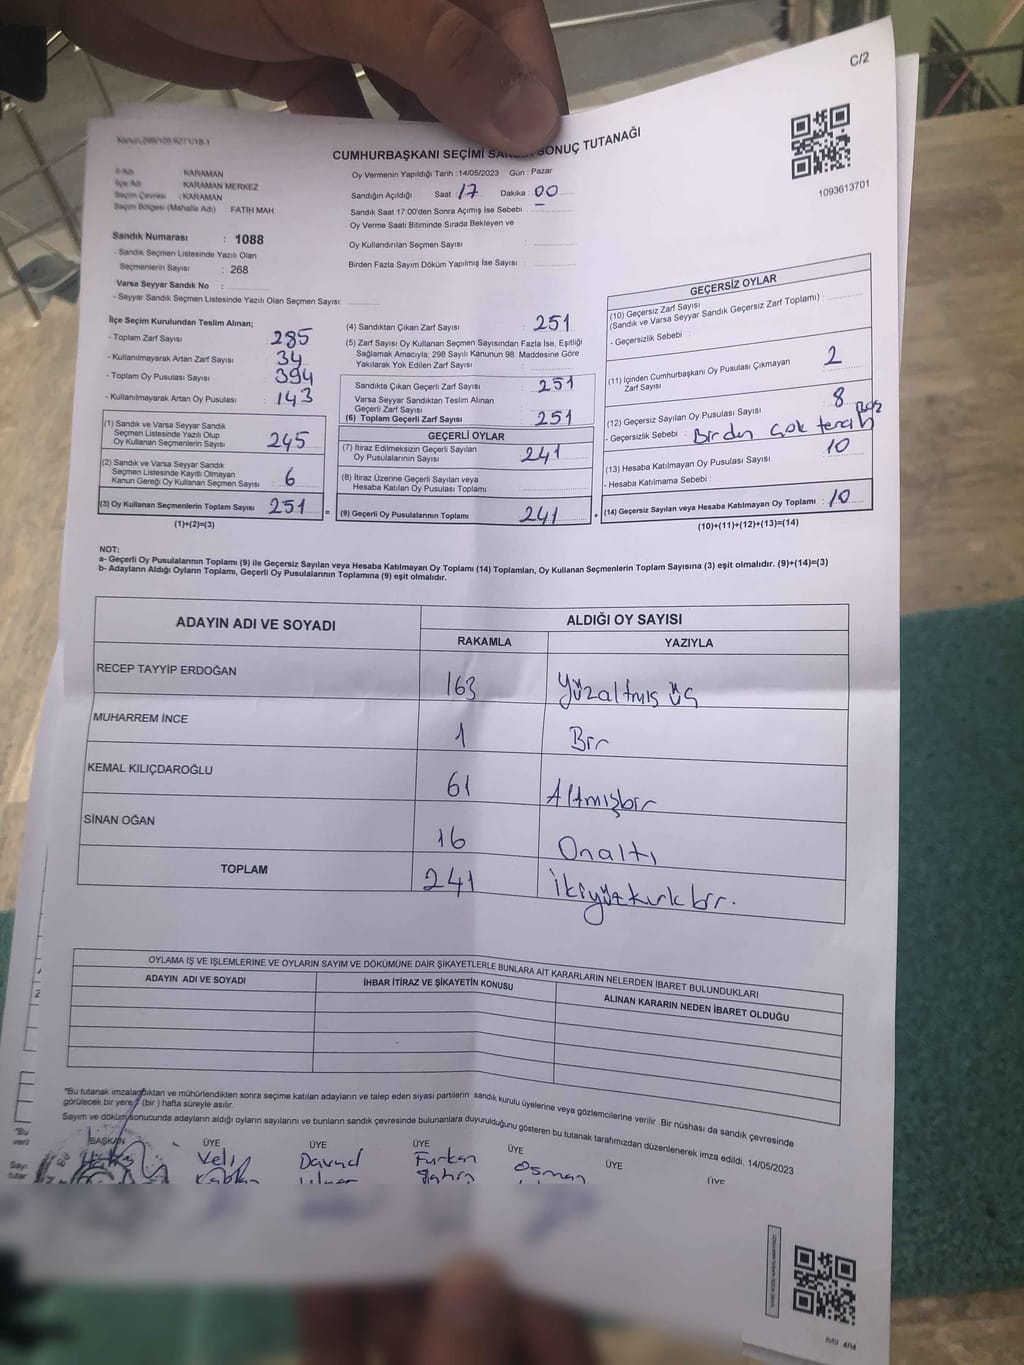 C/2
CUMHURBAŞKANI SEÇİMİ SONUÇ TUTANAĞI
1093613701
İl Adı : KARAMAN
İlçe Adı : KARAMAN MERKEZ
Seçim Çevresi : KARAMAN
Seçim Bölgesi (Mahalle Adı) : FATİH MAH
Sandık Numarası : 1088
- Sandık Seçmen Listesinde Yazılı Olan
Seçmenlerin Sayısı : 268
Varsa Seyyar Sandık No :
- Seyyar Sandık Seçmen Listesinde Yazılı Olan Seçmen Sayısı:
Oy Vermenin Yapıldığı Tarih :14/05/2023 Gün : Pazar
Sandığın Açıldığı Saat 17 Dakika : 00
Sandık Saat 17:00'den Sonra Açımış İse Sebebi :
Oy Verme Saati Bitiminde Sırada Bekleyen ve
Oy Kullandırılan Seçmen Sayısı :
Birden Fazla Sayım Döküm Yapılmış İse Sayısı :
İlçe Seçim Kurulundan Teslim Alınan;
- Toplam Zarf Sayısı : 285
- Kullanılmayarak Artan Zarf Sayısı : 34
- Toplam Oy Pusulası Sayısı : 394
- Kullanılmayarak Artan Oy Pusulası : 143
(1) Sandık ve Varsa Seyyar Sandık
Seçmen Listesinde Yazılı Olup
Oy Kullanan Seçmenlerin Sayısı : 245
(2) Sandık ve Varsa Seyyar Sandık
Seçmen Listesinde Kayıtlı Olmayan
Kanun Gereği Oy Kullanan Seçmen Sayısı : 6
(3) Oy Kullanan Seçmenlerin Toplam Sayısı : 251
(1)+(2)=(3)
(4) Sandıktan Çıkan Zarf Sayısı : 251
(5) Zarf Sayısı Oy Kullanan Seçmen Sayısından Fazla İse, Eşitliği
Sağlamak Amacıyla, 298 Sayılı Kanunun 98. Maddesine Göre
Yakılarak Yok Edilen Zarf Sayısı :
Sandıkta Çıkan Geçerli Zarf Sayısı : 251
Varsa Seyyar Sandıktan Teslim Alınan
Geçerli Zarf Sayısı :
(6) Toplam Geçerli Zarf Sayısı : 251
GEÇERLİ OYLAR
(7) İtiraz Edilmeksizin Geçerli Sayılan
Oy Pusulalarının Sayısı : 241
(8) İtiraz Üzerine Geçerli Sayılan veya
Hesaba Katılan Oy Pusulası Toplamı :
(9) Geçerli Oy Pusulalarının Toplamı : 241
GEÇERSİZ OYLAR
(10) Geçersiz Zarf Sayısı
(Sandık ve Varsa Seyyar Sandık Geçersiz Zarf Toplamı) :
- Geçersizlik Sebebi :
(11) İçinden Cumhurbaşkanı Oy Pusulası Çıkmayan
Zarf Sayısı : 2
(12) Geçersiz Sayılan Oy Pusulası Sayısı : 8
- Geçersizlik Sebebi : Birden çok tercih boş
(13) Hesaba Katılmayan Oy Pusulası Sayısı : 10
- Hesaba Katılmama Sebebi :
(14) Geçersiz Sayılan veya Hesaba Katılmayan Oy Toplamı : 10
(10)+(11)+(12)+(13)=(14)
NOT:
a- Geçerli Oy Pusulalarının Toplamı (9) ile Geçersiz Sayılan veya Hesaba Katılmayan Oy Toplamı (14) Toplamları, Oy Kullanan Seçmenlerin Toplam Sayısına (3) eşit olmalıdır. (9)+(14)=(3)
b- Adayların Aldığı Oyların Toplamı, Geçerli Oy Pusulalarının Toplamına (9) eşit olmalıdır.
ADAYIN ADI VE SOYADI ALDIĞI OY SAYISI
RAKAMLA YAZIYLA
RECEP TAYYİP ERDOĞAN 163 Yüzaltmış üç
MUHARREM İNCE 1 Bir
KEMAL KILIÇDAROĞLU 61 Altmışbir
SİNAN OĞAN 16 Onaltı
TOPLAM 241 İkiyüzkırk bir.
OYLAMA İŞ VE İŞLEMLERİNE VE OYLARIN SAYIM VE DÖKÜMÜNE DAİR ŞİKAYETLERLE BUNLARA AİT KARARLARIN NELERDEN İBARET BULUNDUKLARI
ADAYIN ADI VE SOYADI İHBAR İTİRAZ VE ŞİKAYETİN KONUSU ALINAN KARARIN NEDEN İBARET OLDUĞU
*Bu tutanak imzalandıktan ve mühürlendikten sonra seçime katılan adayların ve talep eden siyasi partilerin sandık kurulu üyelerine veya gözlemcilerine verilir. Bir nüshası da sandık çevresinde
görülecek bir yere 1 (bir ) hafta süreyle asılır.
Sayım ve döküm sonucunda adayların aldığı oyların sayılarını ve bunların sandık çevresinde bulunanlara duyurulduğunu gösteren bu tutanak tarafımızdan düzenlenerek imza edildi. 14/05/2023
BAŞKAN ÜYE ÜYE ÜYE ÜYE ÜYE ÜYE
Veli Davud Furkan Osman
Kaplan Şahin